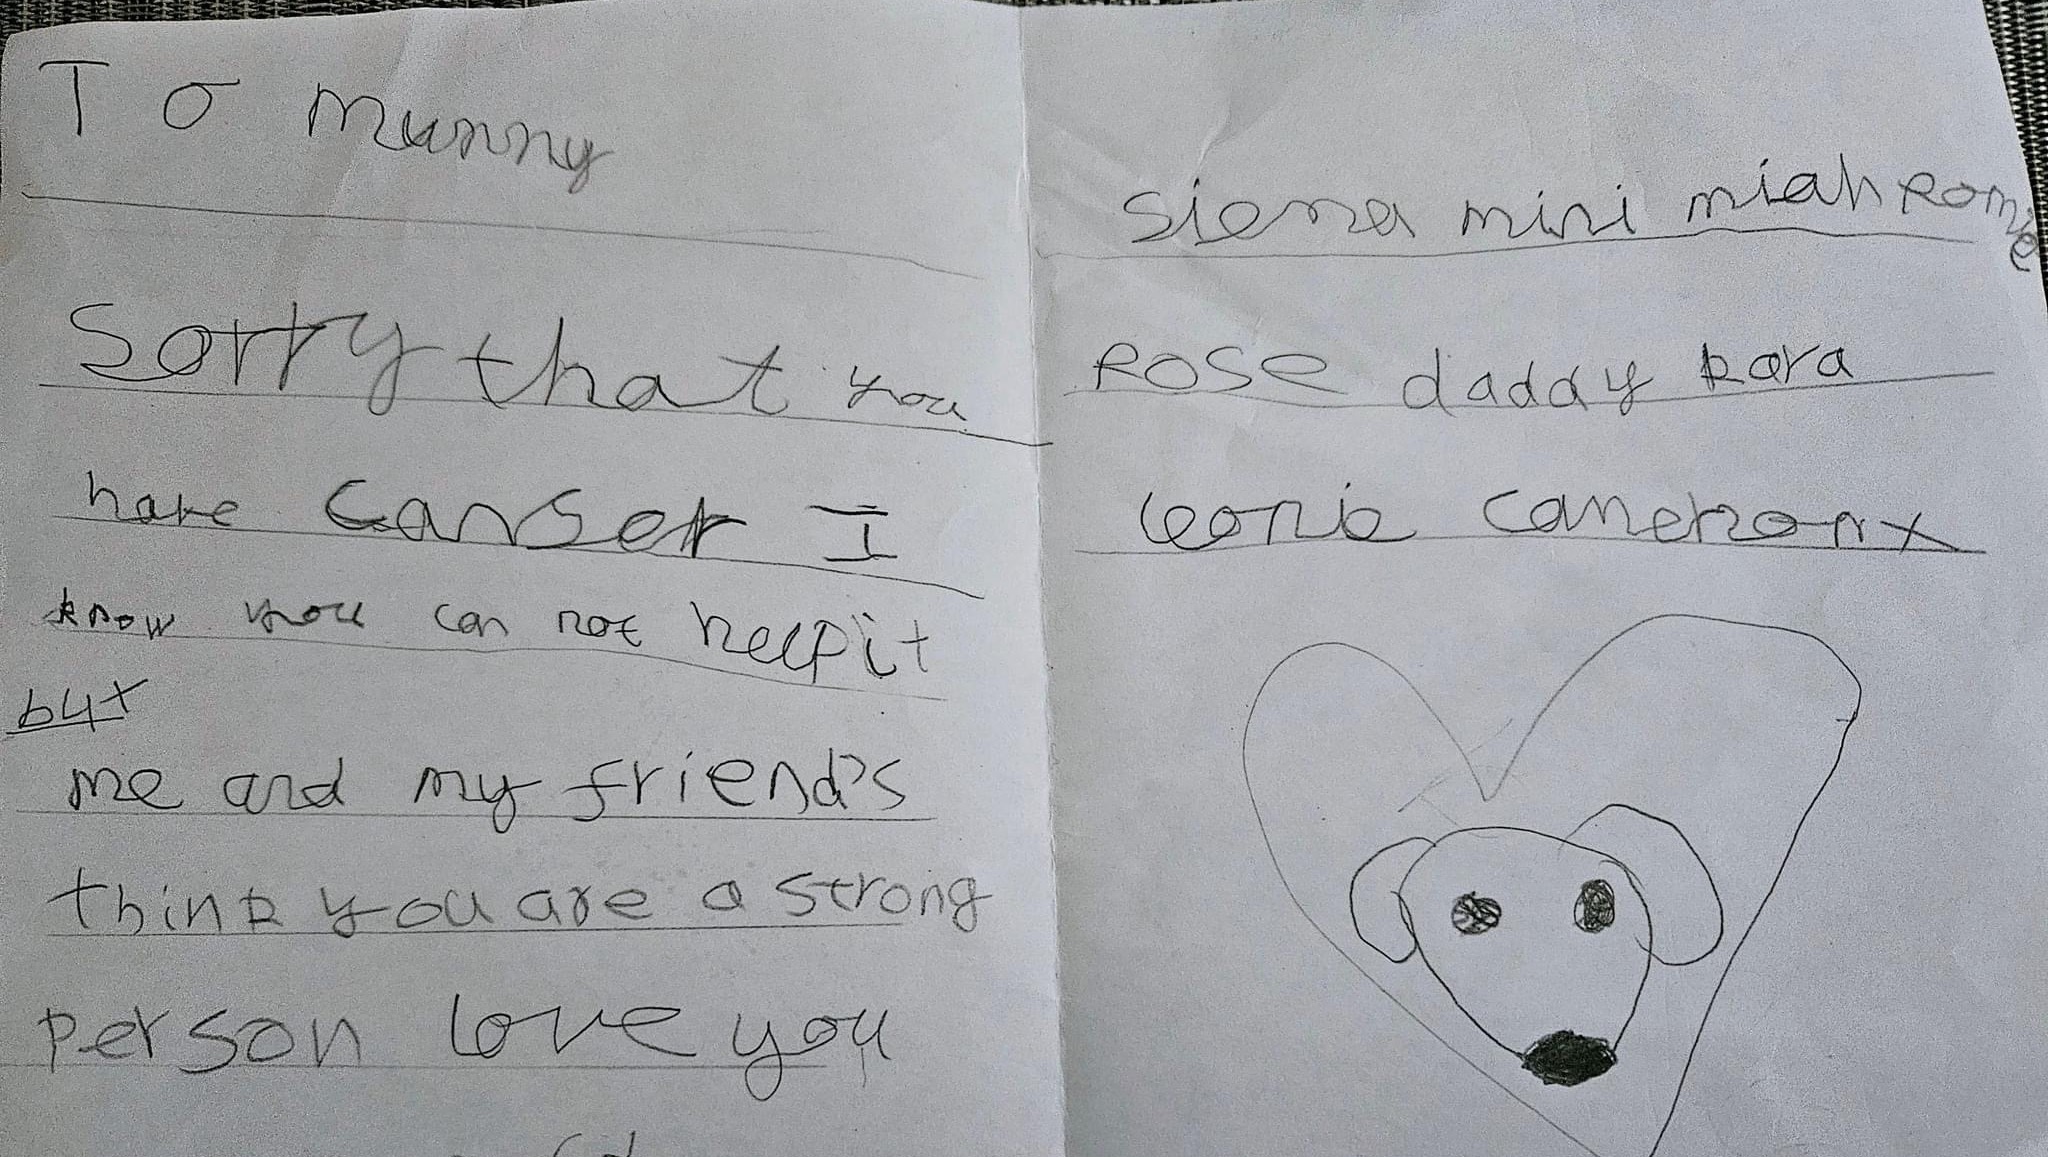 To mummy
Sorry that you
have canser I
know you can not help it
but
me and my friend's
think you are a strong
person love you
Siena mini miah Romie
Rose daddy kara
leonie cameron x